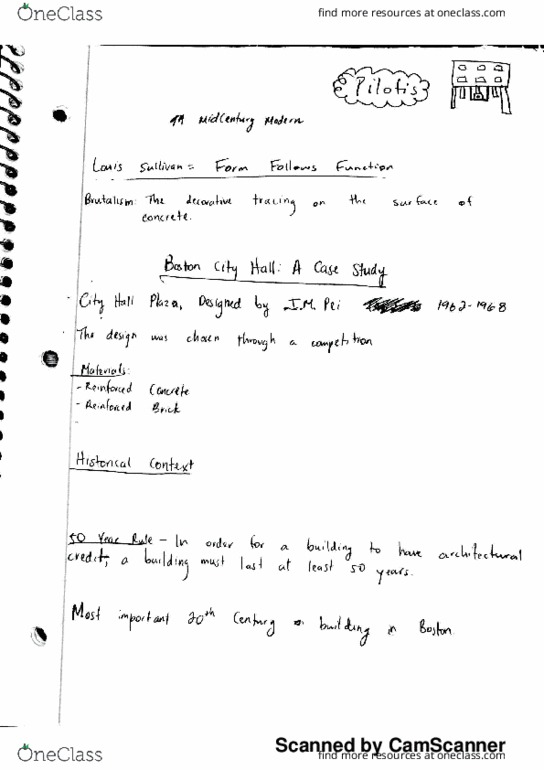 OneClass
find more resources at oneclass.com
Pilotis
MidCentury Modern
Louis Sullivan = Form Follows Function
Brutalism: The decorative tracing on the surface of
concrete.
Boston City Hall: A Case Study
- City Hall Plaza, Designed by I.M. Pei 1962-1968
- The design was chosen through a competition
Materials:
- Reinforced Concrete
- Reinforced Brick
-
Historical Context
50 Year Rule - In order for a building to have architectural
credit, a building must last at least 50 years.
Most important 20th Century building in Boston.
Scanned by CamScanner
OneClass
find more resources at oneclass.com